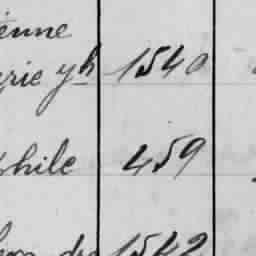 enne
rie yh 1540
phile 459
1542